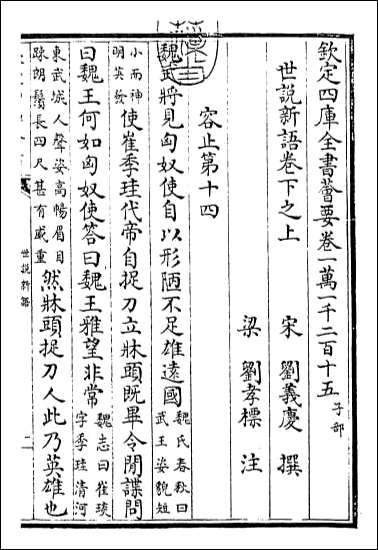 欽定四庫全書薈要卷一萬一千二百十五 子部
世說新語卷下之上
宋 劉義慶 撰
梁 劉孝標 注
容止第十四
魏武將見匈奴使自以形陋不足雄逺國 魏氏春秋曰武王姿貌短
小而神明英發 使崔季珪代帝自捉刀立牀頭既畢令閒諜問
曰魏王何如匈奴使答曰魏王雅望非常 魏志曰崔琰字季珪清河
東武城人聲姿高暢眉目疎朗鬚長四尺甚有威重 然牀頭捉刀人此乃英雄也
世說新語